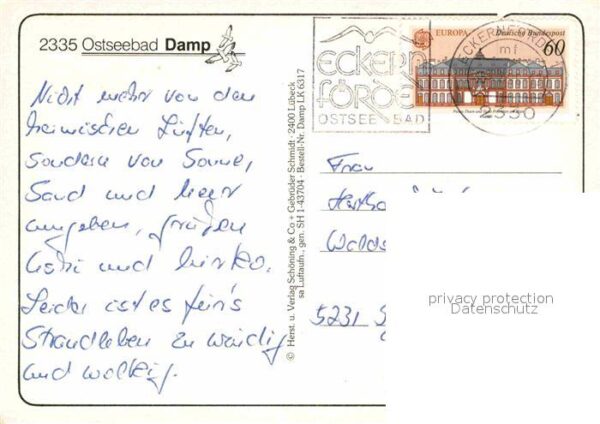 2335 Ostseebad Damp
Nicht mehr von den
heimischen Lüften,
sondern von Sonne,
Sand und Meer
umgeben, grüßen
und
Leider ist es für's
Strandleben zu windig
und wolkig.
© Herst. u. Verlag Schöning & Co + Gebrüder Schmidt · 2400 Lübeck
sa Luftaufn., gen. SH 1-43704 · Bestell-Nr. Damp LK 6317
ECKERN
FÖRDE
OSTSEEBAD
EUROPA Deutsche Bundespost
60
ECKERNFÖRDE
mf
2330
Frau
5231
privacy protection
Datenschutz